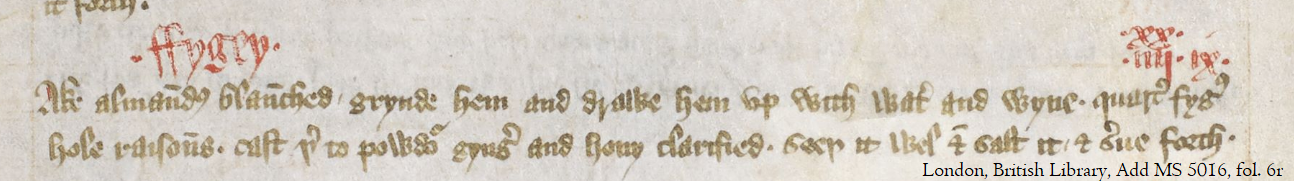 it forth.
.ffygey. .xx.
.iiij. ix.
Ake almaūdꝭ blaūched / grynde hem and drawe hem vp with wat᷑ and wyne. quart᷑ fyg᷑
hole raisoūs. cast þ᷑to powdoͬ gyng᷑ and hony clarified. seeþ it wel ⁊̄ salt it ⁊ s᷑ue forth.
London, British Library, Add MS 5016, fol. 6r